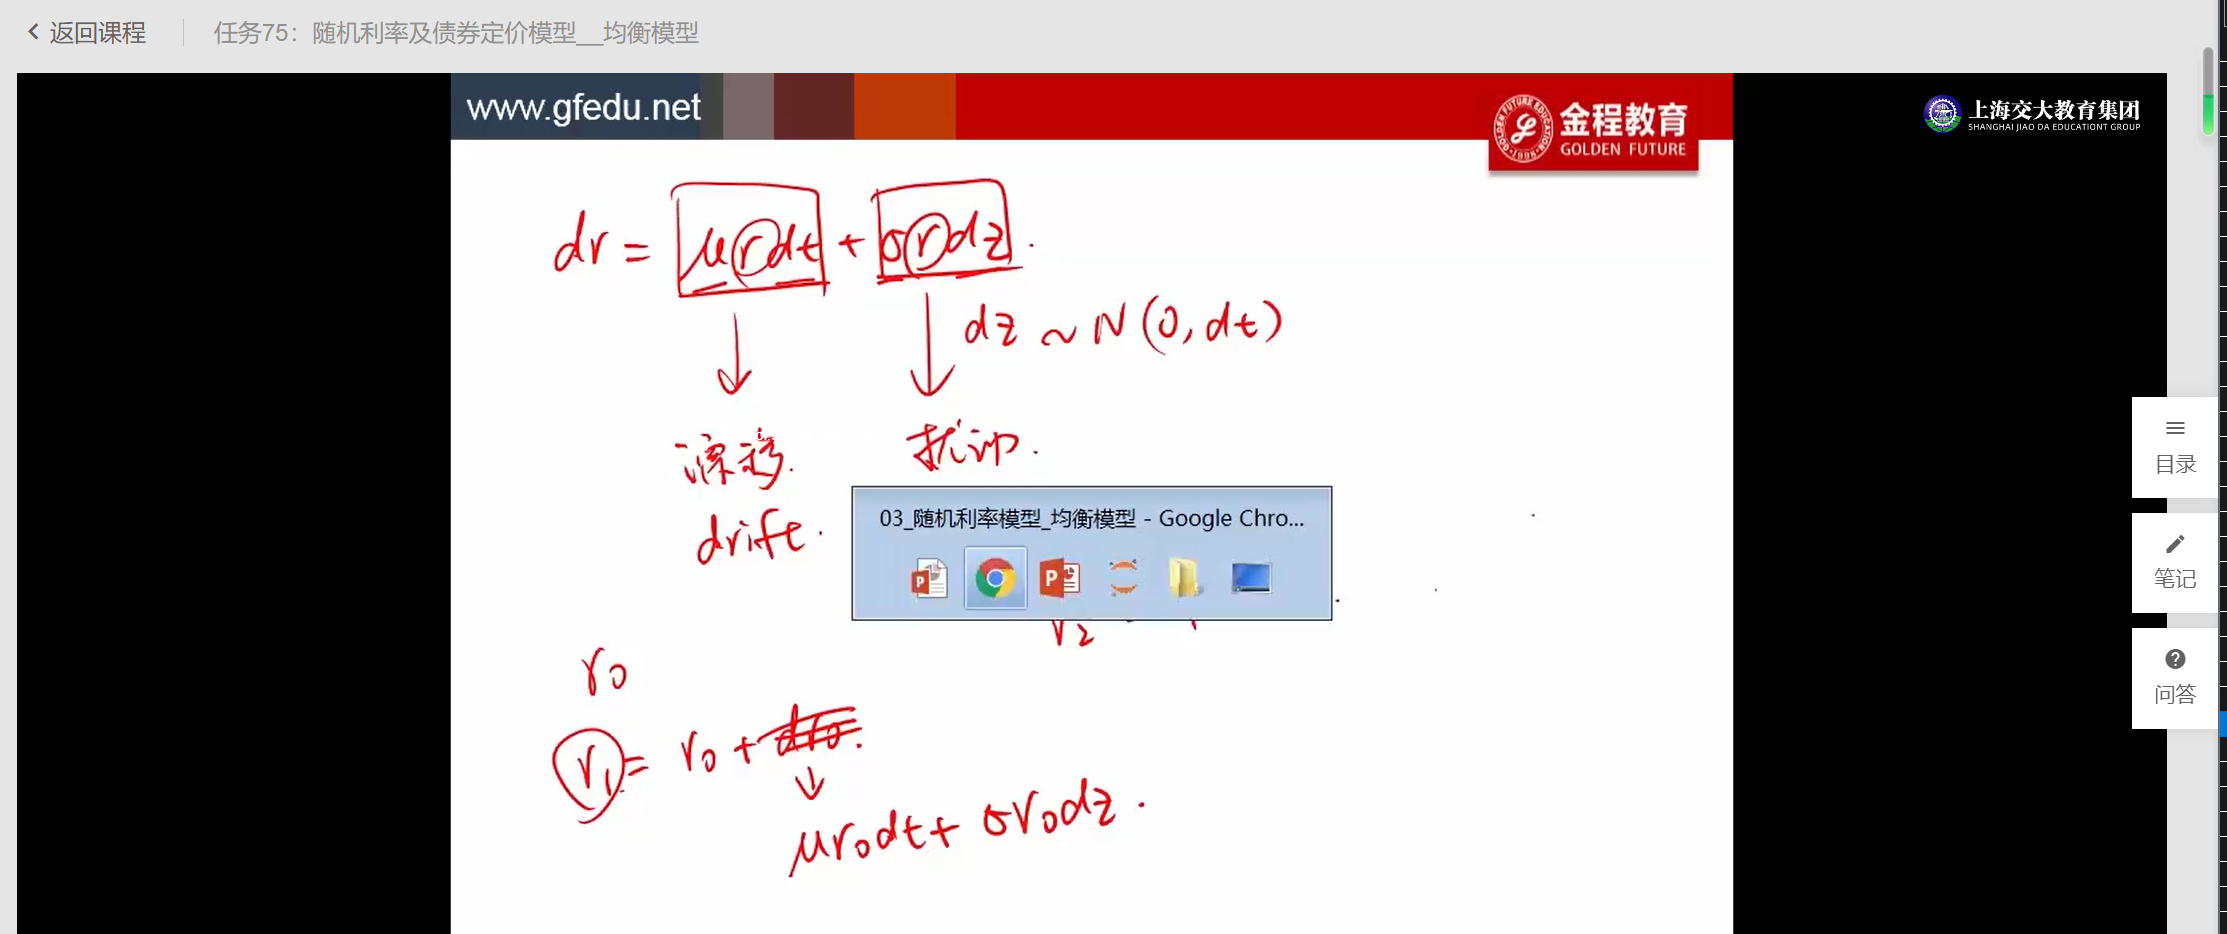 返回课程
任务75：随机利率及债券定价模型__均衡模型
www.gfedu.net
金程教育
GOLDEN FUTURE
上海交大教育集团
SHANGHAI JIAO DA EDUCATIONT GROUP
dr = μrdt + σrdz.
dz ~ N(0, dt)
漂移. 扰动.
drift.
03_随机利率模型_均衡模型 - Google Chro...
r₂
r₀
r₁ = r₀ + dr₀.
μr₀dt + σr₀dz.
目录
笔记
问答